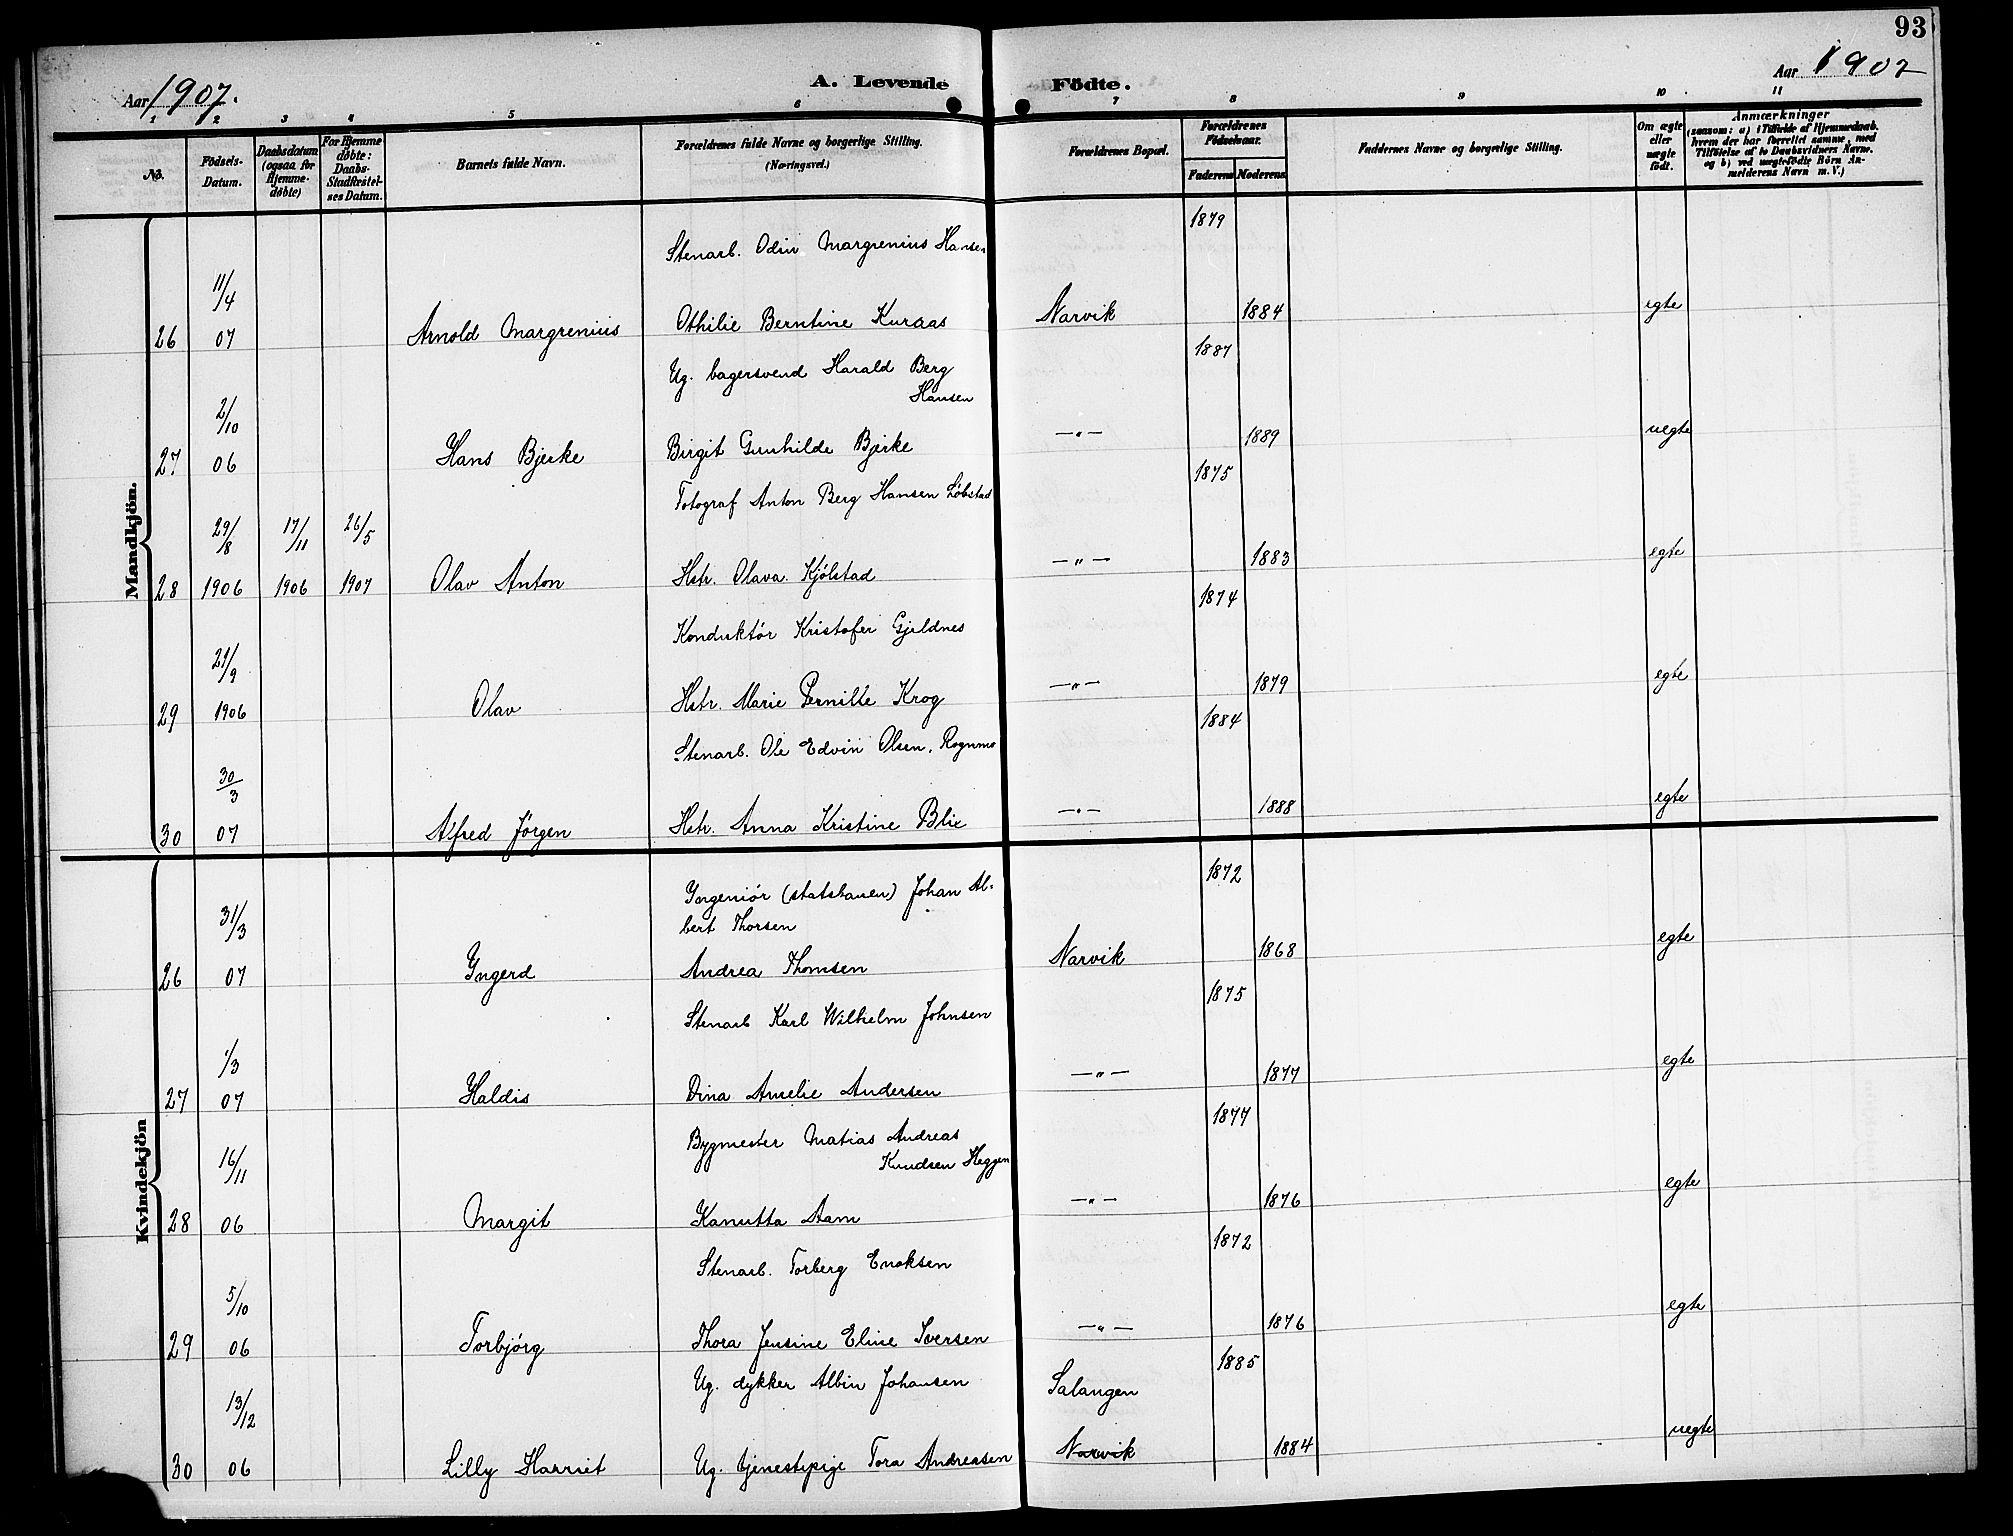 93
Aar 1907.
A. Levende Födte.
Aar 1907
1 2 3 4 5 6 7 8 9 10 11
No.
Födsels-Datum.
Daabsdatum (ogsaa for Hjemmedøbte)
For Hjemmedøbte: Daabs-Stadfæstelses Datum.
Barnets fulde Navn.
Forældrenes fulde Navne og borgerlige Stilling. (Næringsvei.)
Forældrenes Bopæl.
Forældrenes Födselsaar.
Faderens Moderens
Faddernes Navne og borgerlige Stilling.
Om ægte eller uægte født.
Anmærkninger
(saasom: a) i Tilfælde af Hjemmedaab,
hvem der har forrettet samme, med
Tilföielse af to Daabsvidners Navne.
og b) ved uægtefödte Börn An-
melderens Navn m. V.)
Mandkjön.
Stenarb. Odin Margrenius Hansen 1879
26 11/4 07 Arnold Margrenius Othilie Berntine Kuraas Narvik 1884 egte
Ug. bagersvend Harald Berg Hansen 1887
27 2/10 06 Hans Bjerke Birgit Gunhilde Bjerke —"— 1889 uegte
Fotograf Anton Berg Hansen Löbstad 1875
28 29/8 1906 17/11 1906 26/5 1907 Olav Anton Hstr. Olava Kjölstad —"— 1883 egte
Konduktör Kristofer Gjeldnes 1874
29 21/9 1906 Olav Hstr. Marie Pernille Krog —"— 1879 egte
Stenarb. Ole Edvin Olsen, Rognmo 1884
30 30/3 07 Alfred Jörgen Hstr. Anna Kristine Blix —"— 1888 egte
Kvindekjön
Yngeniör (statsbanen) Johan Al- 1872
bert Thorsen
26 31/3 07 Yngerd Andrea Thomsen Narvik 1868 egte
Stenarb Karl Wilhelm Johnsen 1875
27 1/3 07 Haldis Dina Amelie Andersen —"— 1877 egte
Bygmester Matias Andreas Knudsen Heggen 1877
28 16/11 06 Margit Kanutta Aam —"— 1876 egte
Stenarb. Torberg Enoksen 1872
29 5/10 06 Torbjörg Thora Jensine Eline Iversen —"— 1876 egte
Ug. dykker Albin Johansen Salangen 1885
30 13/12 06 Lilly Harriet Ug. tjenestepige Tora Andreasen Narvik 1884 uegte